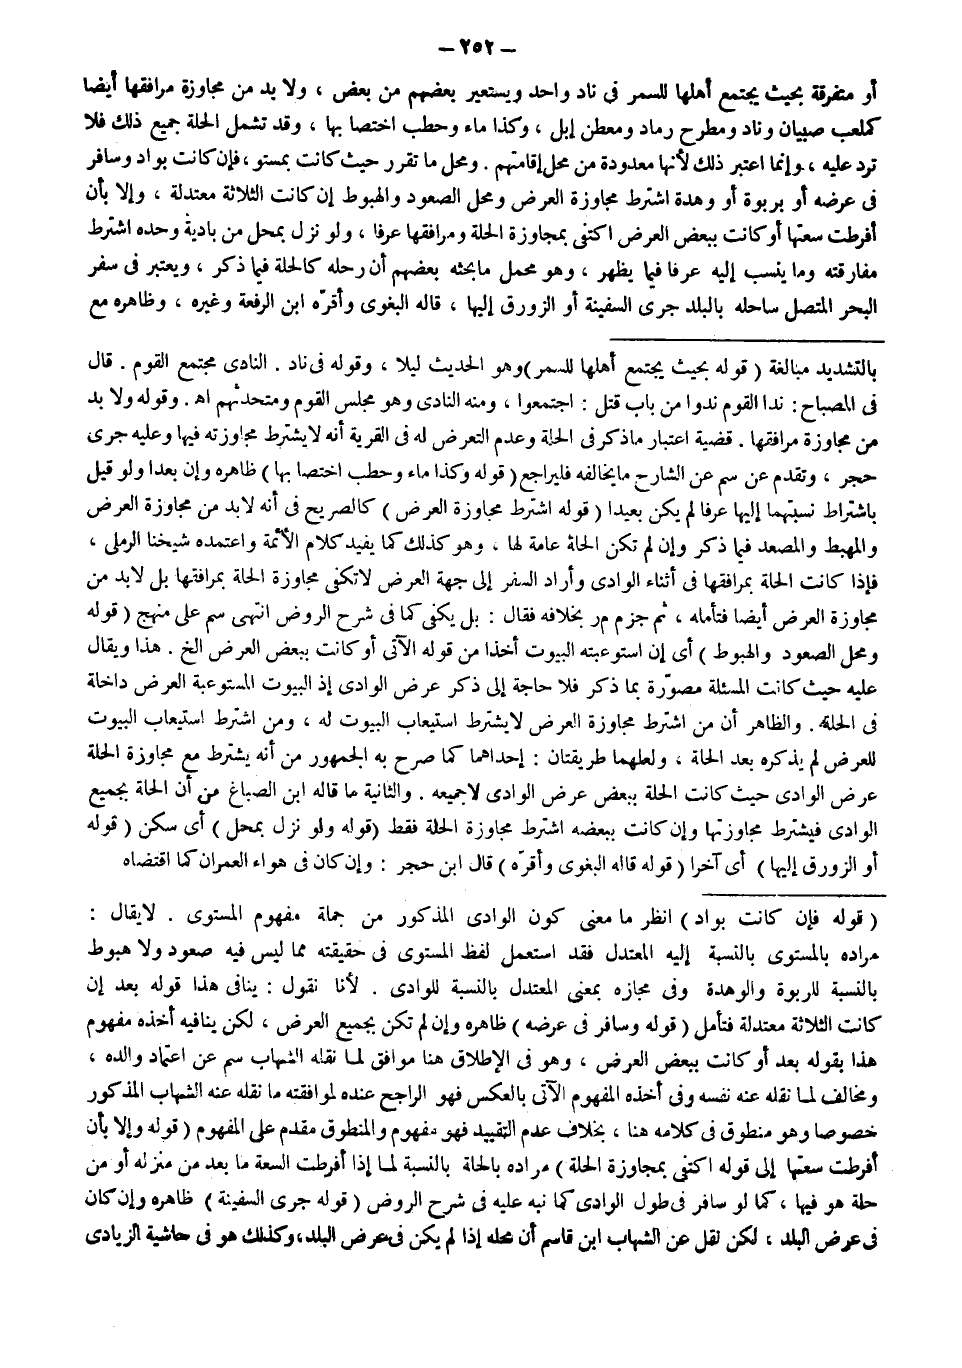 – ٢٥٢ –
أو متفرقة بحيث يجتمع أهلها للسمر فى ناد واحد ويستعير بعضهم من بعض ، ولا بد من مجاوزة مرافقها أيضا
كملعب صبيان وناد ومطرح رماد ومعطن إبل ، وكذا ماء وحطب اختصا بها ، وقد تشمل الحلة جميع ذلك فلا
ترد عليه ، وإنما اعتبر ذلك لأنها معدودة من محل إقامتهم . ومحل ما تقرر حيث كانت بمستو ، فإن كانت بواد وسافر
فى عرضه أو بربوة أو وهدة اشترط مجاوزة العرض ومحل الصعود والهبوط إن كانت الثلاثة معتدلة ، وإلا بأن
أفرطت سعتها أو كانت ببعض العرض اكتفى بمجاوزة الحلة ومرافقها عرفا ، ولو نزل بمحل من بادية وحده اشترط
مفارقته وما ينسب إليه عرفا فيما يظهر ، وهو محمل مابحثه بعضهم أن رحله كالحلة فيما ذكر ، ويعتبر فى سفر
البحر المتصل ساحله بالبلد جرى السفينة أو الزورق إليها ، قاله البغوى وأقرّه ابن الرفعة وغيره ، وظاهره مع
بالتشديد مبالغة ( قوله بحيث يجتمع أهلها للسمر ) وهو الحديث ليلا ، وقوله فى ناد . النادى مجتمع القوم . قال
فى المصباح : ندا القوم ندوا من باب قتل : اجتمعوا ، ومنه النادى وهو مجلس القوم ومتحدثهم اه . وقوله ولا بد
من مجاوزة مرافقها . قضية اعتبار ماذكر فى الحلة وعدم التعرض له فى القرية أنه لايشترط مجاوزته فيها وعليه جرى
حجر ، وتقدم عن سم عن الشارح مايخالفه فليراجع ( قوله وكذا ماء وحطب اختصا بها ) ظاهره وإن بعدا ولو قيل
باشتراط نسبتهما إليها عرفا لم يكن بعيدا ( قوله اشترط مجاوزة العرض ) كالصريح فى أنه لابد من مجاوزة العرض
والمهبط والمصعد فيما ذكر وإن لم تكن الحلة عامة لها ، وهو كذلك كما يفيد كلام الأئمة واعتمده شيخنا الرملى ،
فإذا كانت الحلة بمرافقها فى أثناء الوادى وأراد السفر إلى جهة العرض لاتكفى مجاوزة الحلة بمرافقها بل لابد من
مجاوزة العرض أيضا فتأمله ، ثم جزم مر بخلافه فقال : بل يكفى كما فى شرح الروض انتهى سم على منهج ( قوله
ومحل الصعود والهبوط ) أى إن استوعبته البيوت أخذا من قوله الآتى أو كانت ببعض العرض الخ . هذا ويقال
عليه حيث كانت المسئلة مصوّرة بما ذكر فلا حاجة إلى ذكر عرض الوادى إذ البيوت المستوعبة العرض داخلة
فى الحلة . والظاهر أن من اشترط مجاوزة العرض لايشترط استيعاب البيوت له ، ومن اشترط استيعاب البيوت
للعرض لم يذكره بعد الحلة ، ولعلهما طريقتان : إحداهما كما صرح به الجمهور من أنه يشترط مع مجاوزة الحلة
عرض الوادى حيث كانت الحلة ببعض عرض الوادى لاجميعه . والثانية ما قاله ابن الصباغ من أن الحلة بجميع
الوادى فيشترط مجاوزتها وإن كانت ببعضه اشترط مجاوزة الحلة فقط ( قوله ولو نزل بمحل ) أى سكن ( قوله
أو الزورق إليها ) أى آخرا ( قوله قاله البغوى وأقرّه ) قال ابن حجر : وإن كان فى هواء العمران كما اقتضاه
( قوله فإن كانت بواد ) انظر ما معنى كون الوادى المذكور من جملة مفهوم المستوى . لايقال :
مراده بالمستوى بالنسبة إليه المعتدل فقد استعمل لفظ المستوى فى حقيقته مما ليس فيه صعود ولا هبوط
بالنسبة للربوة والوهدة وفى مجازه بمعنى المعتدل بالنسبة للوادى . لأنا نقول : ينافى هذا قوله بعد إن
كانت الثلاثة معتدلة فتأمل ( قوله وسافر فى عرضه ) ظاهره وإن لم تكن بجميع العرض ، لكن ينافيه أخذه مفهوم
هذا بقوله بعد أو كانت ببعض العرض ، وهو فى الإطلاق هنا موافق لما نقله الشهاب سم عن اعتماد والده ،
ومخالف لما نقله عنه نفسه وفى أخذه المفهوم الآتى بالعكس فهو الراجح عنده لموافقته ما نقله عنه الشهاب المذكور
خصوصا وهو منطوق فى كلامه هنا ، بخلاف عدم التقييد فهو مفهوم والمنطوق مقدم على المفهوم ( قوله وإلا بأن
أفرطت سعتها إلى قوله اكتفى بمجاوزة الحلة ) مراده بالحلة بالنسبة لما إذا أفرطت السعة ما بعد من منزله أو من
حلة هو فيها ، كما لو سافر فى طول الوادى كما نبه عليه فى شرح الروض ( قوله جرى السفينة ) ظاهره وإن كان
فى عرض البلد ، لكن نقل عن الشهاب ابن قاسم أن محله إذا لم يكن فى عرض البلد ، وكذلك هو فى حاشية الزيادى